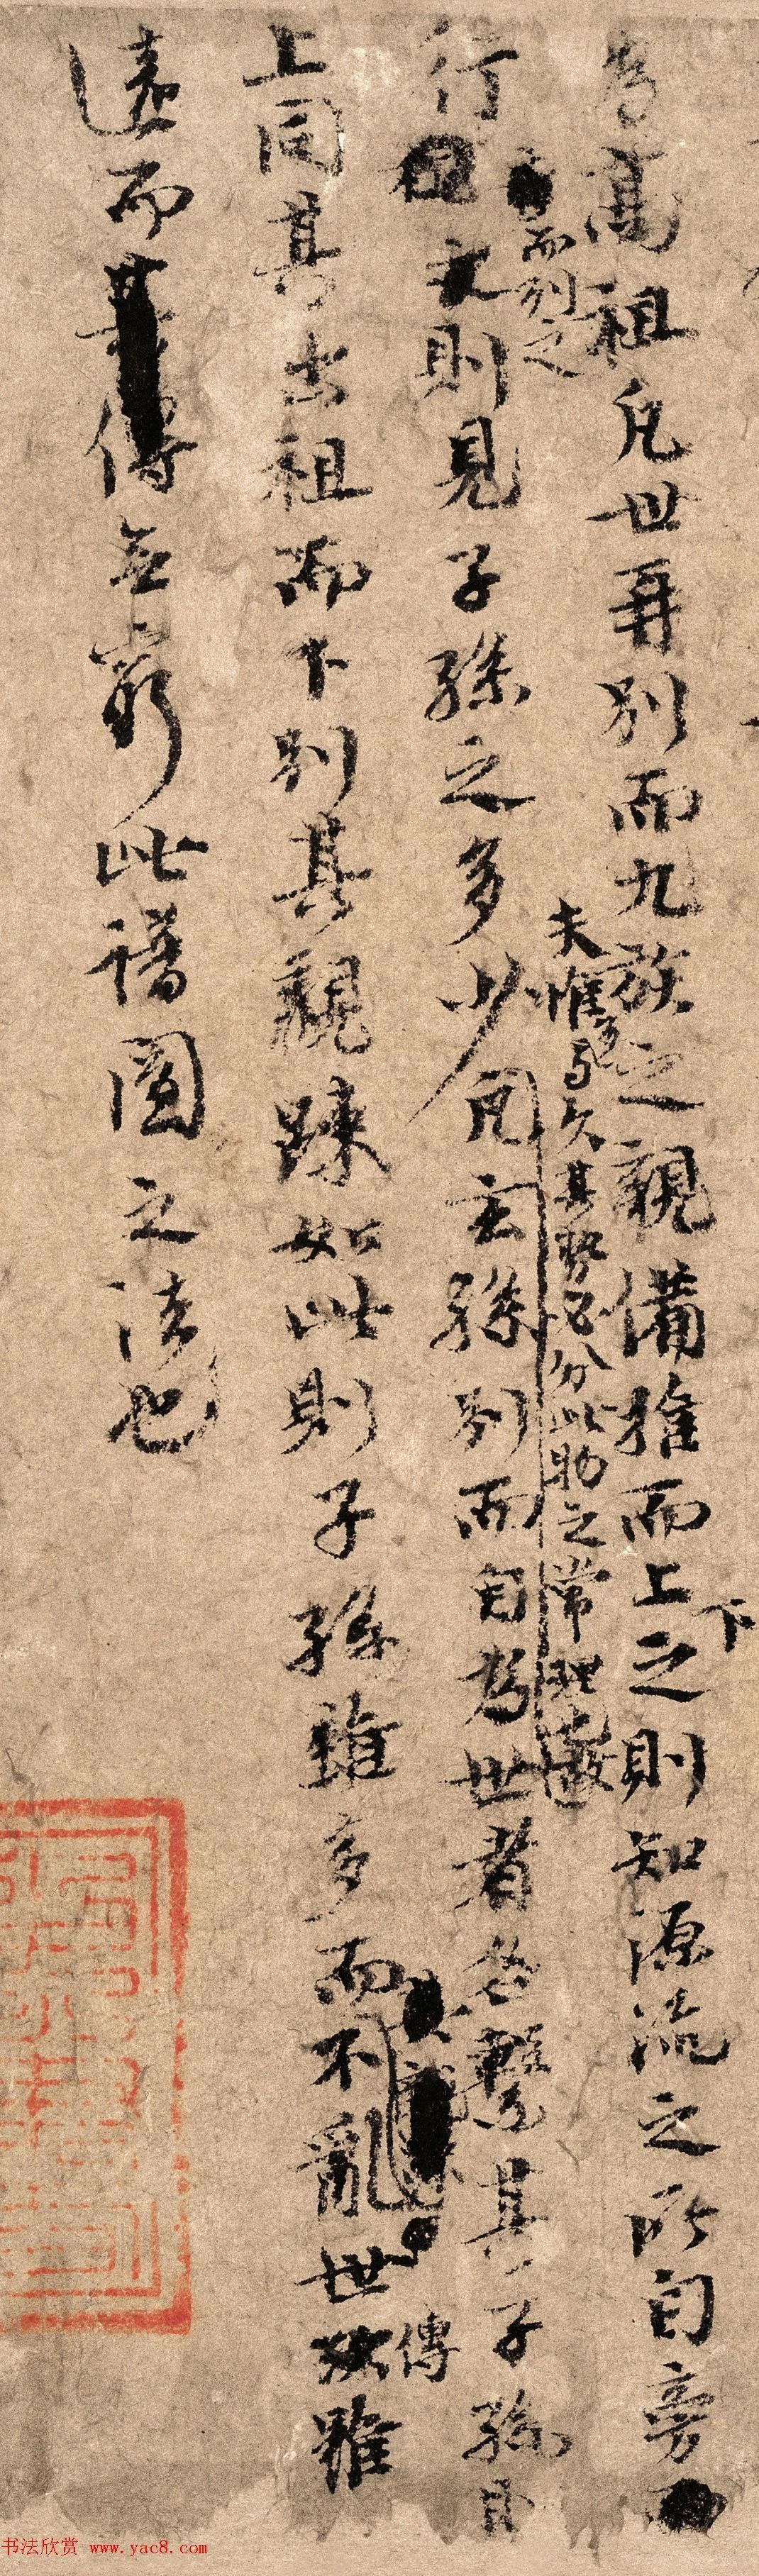 為高祖凡世再別而九族之親備推而上下之則知源流之所自旁
行而列之則見子孫之多少
夫惟多與久其勢必分此物之常理也故
凡玄孫別而自為世者各繫其子孫自
上同其出祖而下別其親踈如此則子孫雖多而不亂世傳雖
遠而無窮此譜圖之法也
书法欣赏 www.yac8.com